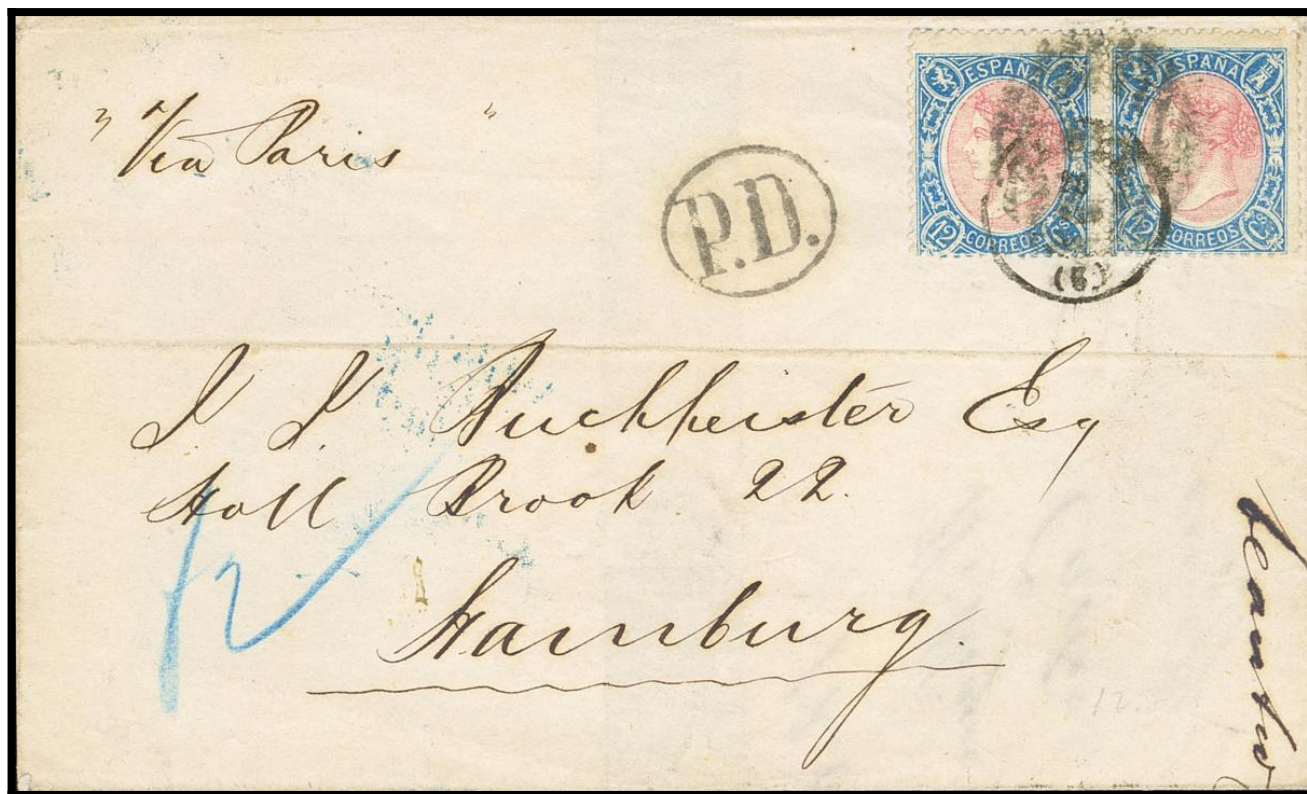 "Via Paris"
P.D.
ESPAÑA
12 CORREOS Cs
ESPAÑA
12 CORREOS Cs
(6)
J. J. Puchheister Esq
Holl Brook 22.
Hamburg.
12
12.